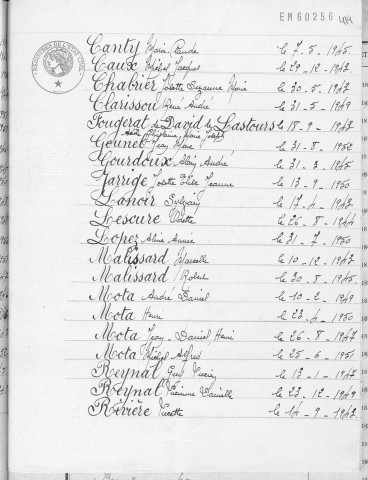 EM60256 414
REGISTRES DE L'ETAT CIVIL
Canty Marie Claude le 7. 5. 1945
Caux Michel Jacques le 29. 12. 1947
Chabrier Josette Suzanne Marie le 30. 5. 1947
Clarissou René André le 31. 5. 1949
Fougerat de David de Lastours le 18. 9. 1947
Ghislaine Marie Joseph
Geunet Jean Marc le 31. 8. 1952
Gourdoux Alain André le 31. 3. 1945
Jarrige Josette Elise Jeanne le 13. 9. 1950
Lanoir Sylvain le 17. 4. 1947
Lescure Odette le 26. 8. 1944
Lopez Aline Annie le 31. 7. 1950
Malissard Marcelle le 10. 12. 1947
Malissard Robert le 30. 8. 1945
Mota André Daniel le 10. 2. 1949
Mota Henri le 23. 4. 1950
Mota Jean-Daniel Henri le 26. 8. 1947
Mota Michel Alfred le 25. 6. 1951
Reynal Guy Lucien le 13. 1. 1947
Reynal Vivienne Danielle le 23. 12. 1949
Rivière Lucette le 14. 9. 1947